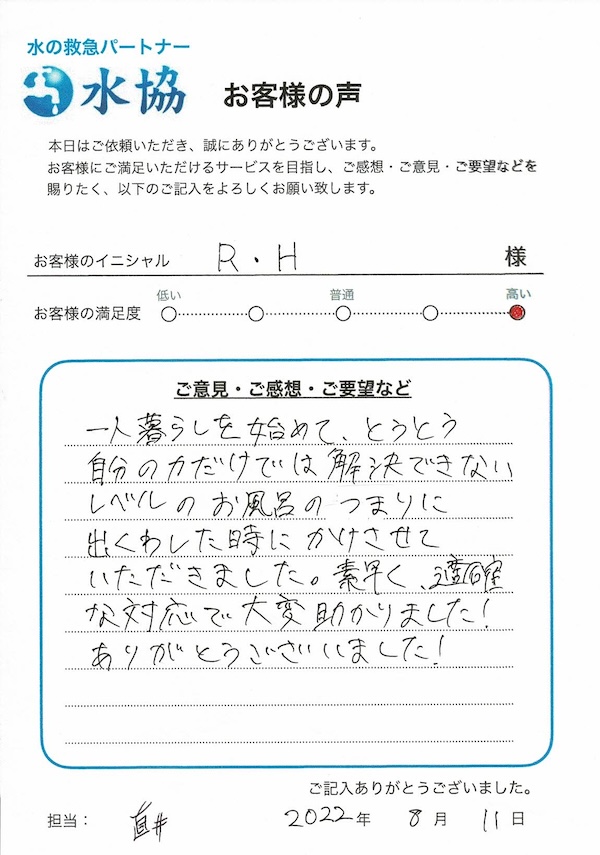 水の救急パートナー
水協 お客様の声
本日はご依頼いただき、誠にありがとうございます。
お客様にご満足いただけるサービスを目指し、ご感想・ご意見・ご要望などを
賜りたく、以下のご記入をよろしくお願い致します。
お客様のイニシャル R・H 様
低い 普通 高い
お客様の満足度
ご意見・ご感想・ご要望など
一人暮らしを始めて、とうとう
自分の力だけでは解決できない
レベルのお風呂のつまりに
出くわした時にかけさせて
いただきました。素早く、適確
な対応で大変助かりました!
ありがとうございました!
ご記入ありがとうございました。
担当: 直井 2022年 8月 11日